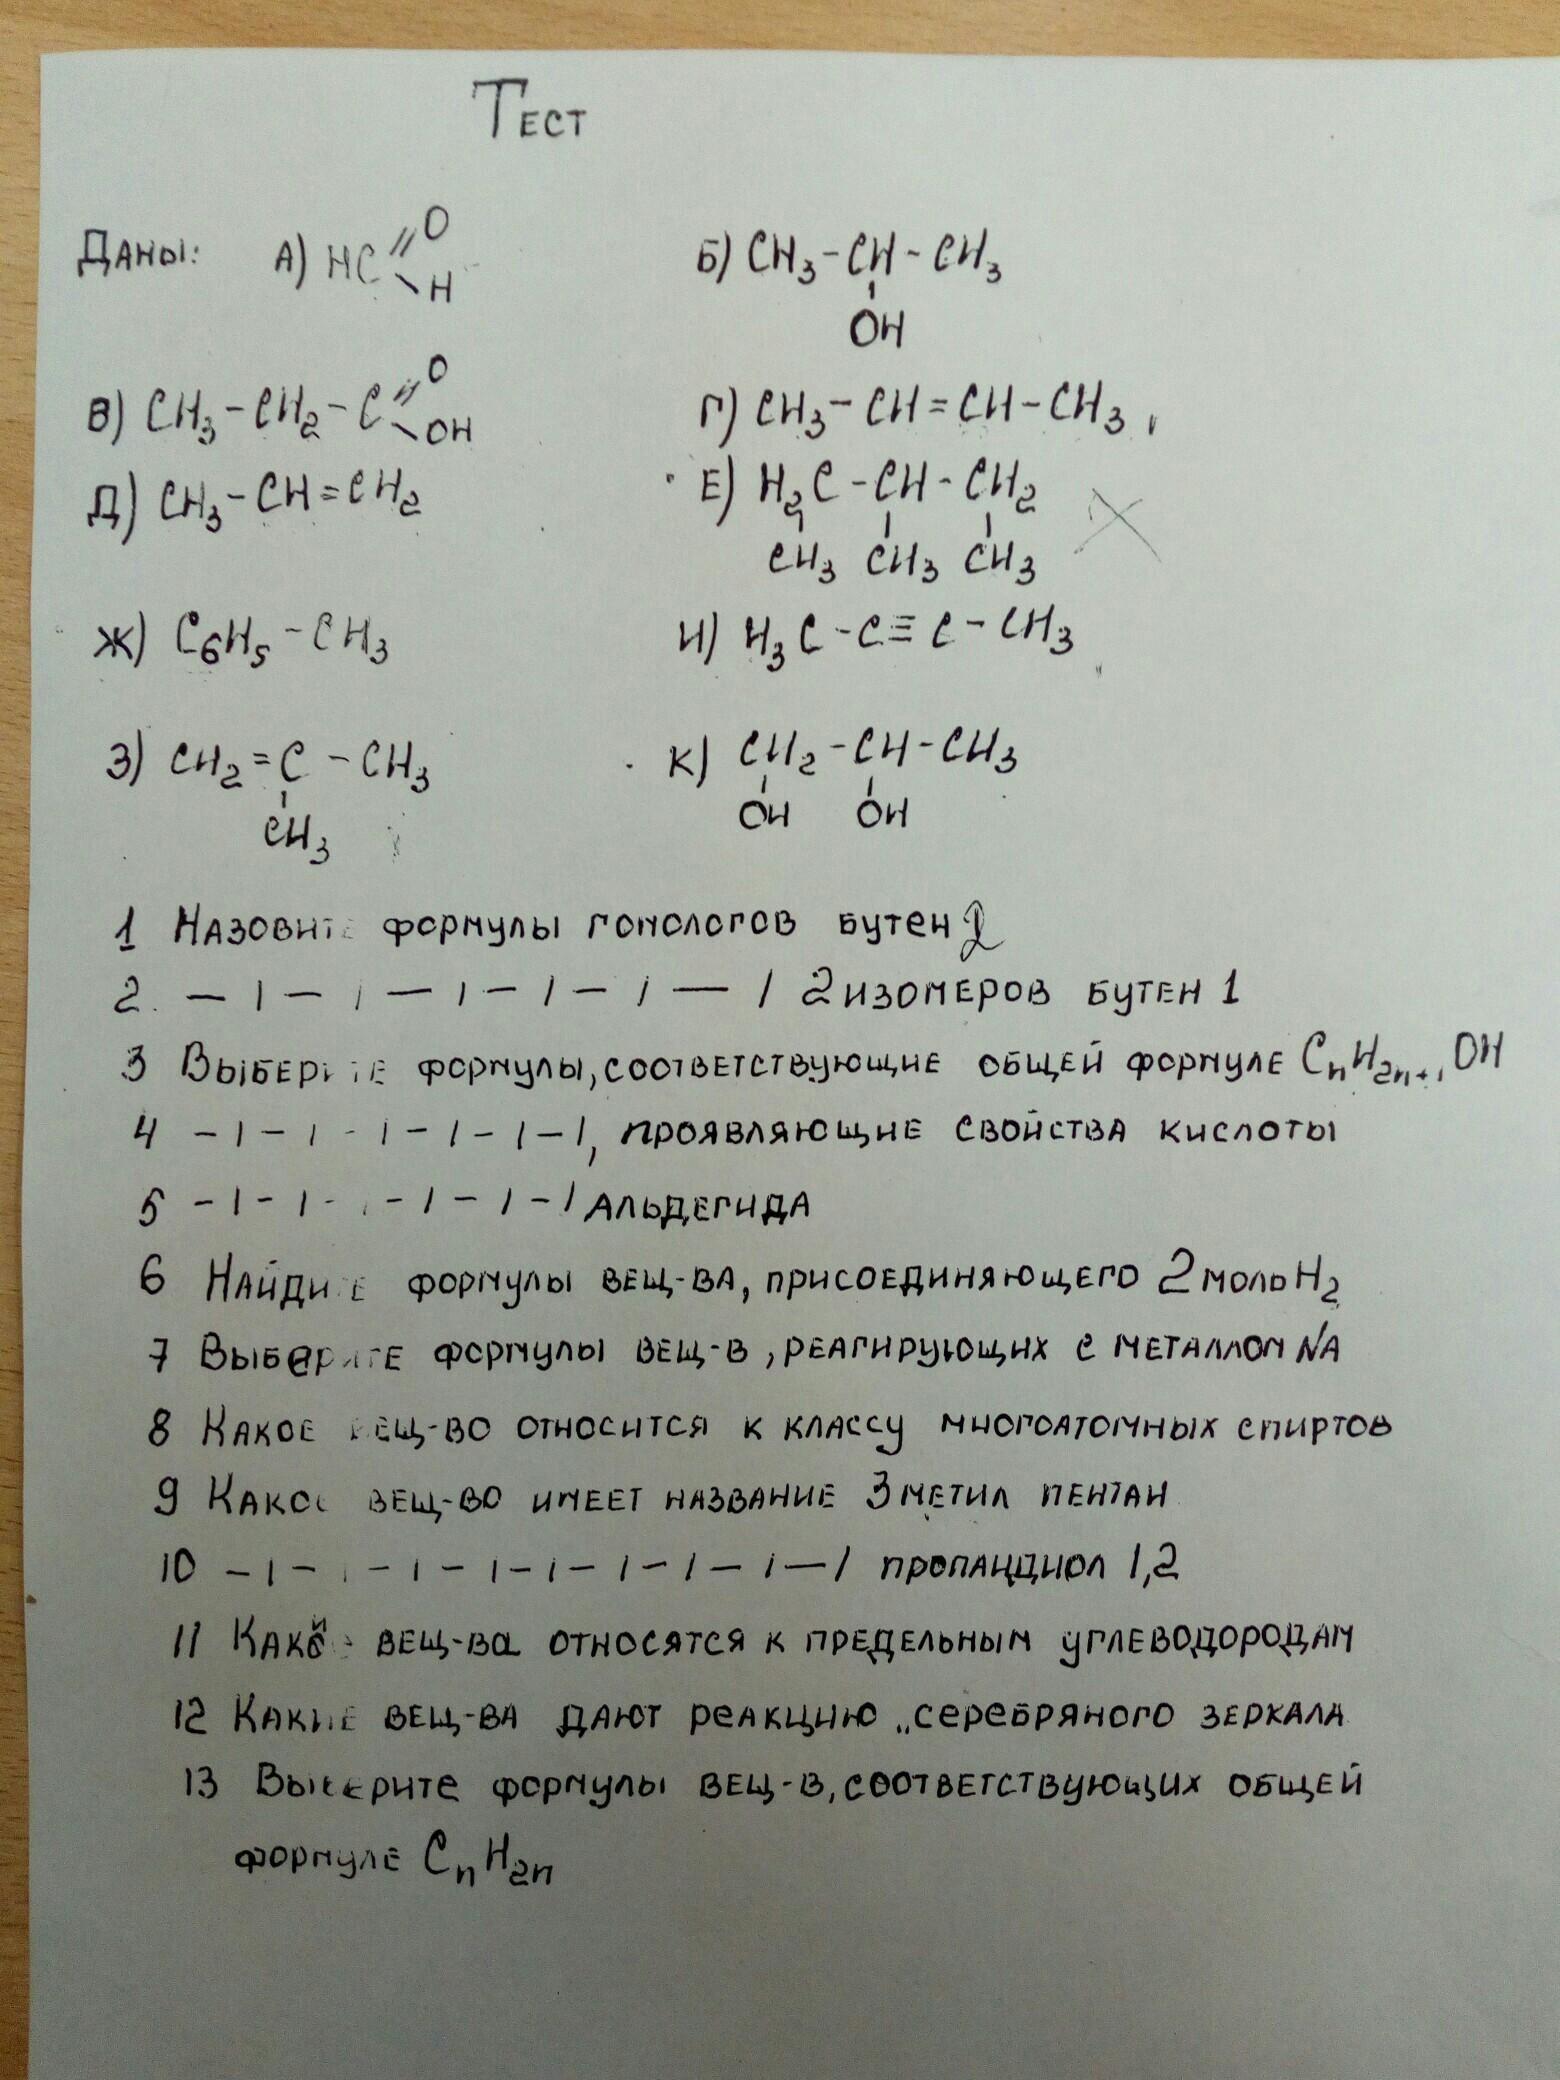 Тест
Даны: А) HC=O-H Б) CH3-CH-CH3
OH
В) CH3-CH2-C=O-OH Г) CH3-CH=CH-CH3
Д) CH3-CH=CH2 Е) H2C-CH-CH2
CH3 CH3 CH3
Ж) C6H5-CH3 И) H3C-C≡C-CH3
З) CH2=C-CH3 К) CH2-CH-CH3
CH3 OH OH
1 Назовите формулы гомологов бутен 2
2. — ı — ı — ı — ı — ı — ı 2 изомеров бутен 1
3 Выберите формулы, соответствующие общей формуле CnH2n+1OH
4 - ı - ı - ı - ı - ı - ı, проявляющие свойства кислоты
5 - ı - ı - ı - ı - ı - ı альдегида
6 Найдите формулы вещ-ва, присоединяющего 2 моль H2
7 Выберите формулы вещ-в, реагирующих с металлом Na
8 Какое вещ-во относится к классу многоатомных спиртов
9 Какое вещ-во имеет название 3 метил пентан
10 - ı - ı - ı - ı - ı - ı - ı - ı - ı пропандиол 1,2
11 Какие вещ-ва относятся к предельным углеводородам
12 Какие вещ-ва дают реакцию „серебряного зеркала
13 Выберите формулы вещ-в, соответствующих общей
формуле CnH2n